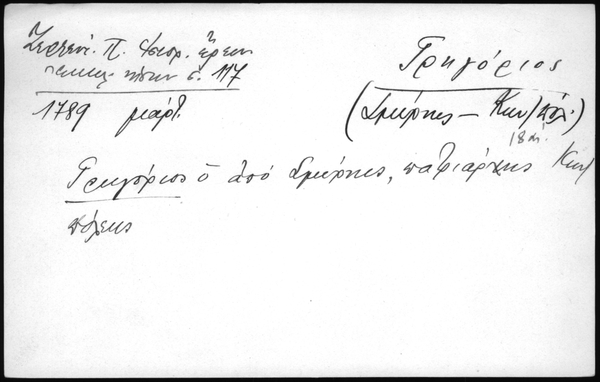 Ζερλέν. Π. Ἱστορ. ἔρευν.
σ. 117
1789 μάρτ.
Γρηγόριος
(Σμύρνης – Κων/πόλ.)
18 αἰ.
Γρηγόριος ὁ ἀπό Σμύρνης, πατριάρχης Κων/
πόλεως